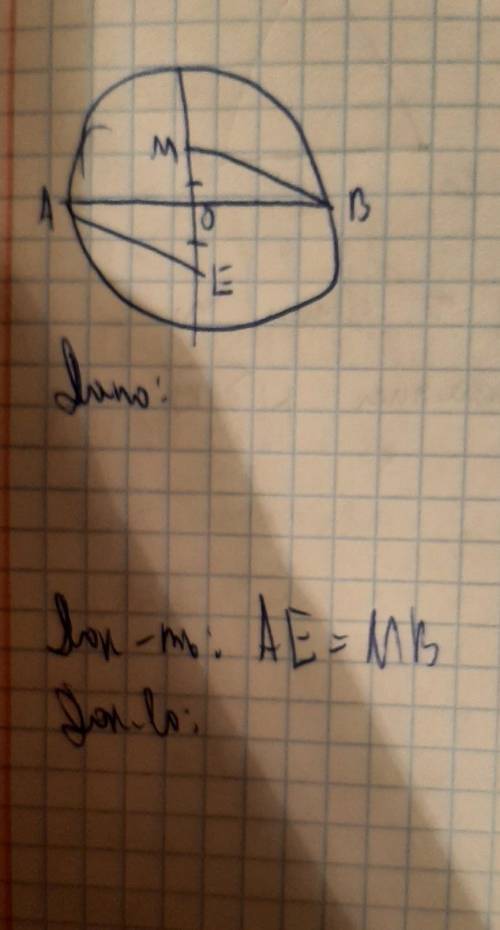 M
A O B
E
Дано:
Док-ть: AE = MB
Док-во: